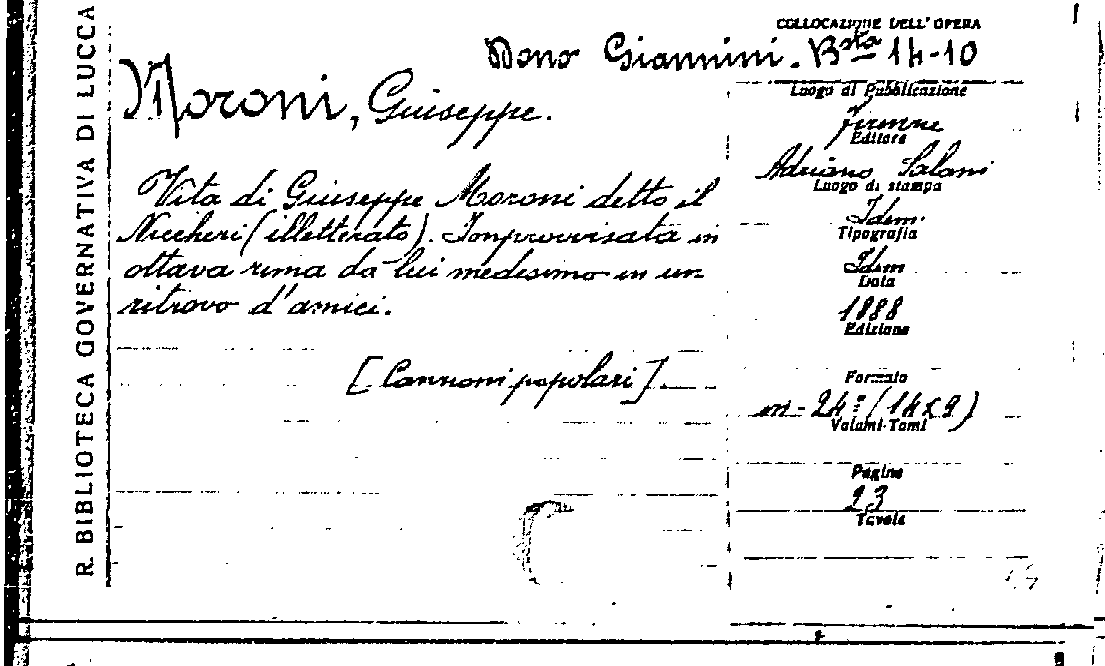 R. BIBLIOTECA GOVERNATIVA DI LUCCA
COLLOCAZIONE DELL'OPERA
Dono Giannini. Bsta 14-10
Moroni, Giuseppe.
Vita di Giuseppe Moroni detto il
Niccheri (illetterato). Improvvisata in
ottava rima da lui medesimo in un
ritrovo d'amici.
[Canzoni popolari].
Luogo di Pubblicazione
Firenze
Editore
Adriano Salani
Luogo di stampa
Idem.
Tipografia
Idem
Data
1888
Edizione
Formato
in-24º (14x9)
Volumi-Tomi
Pagine
23
Tavole